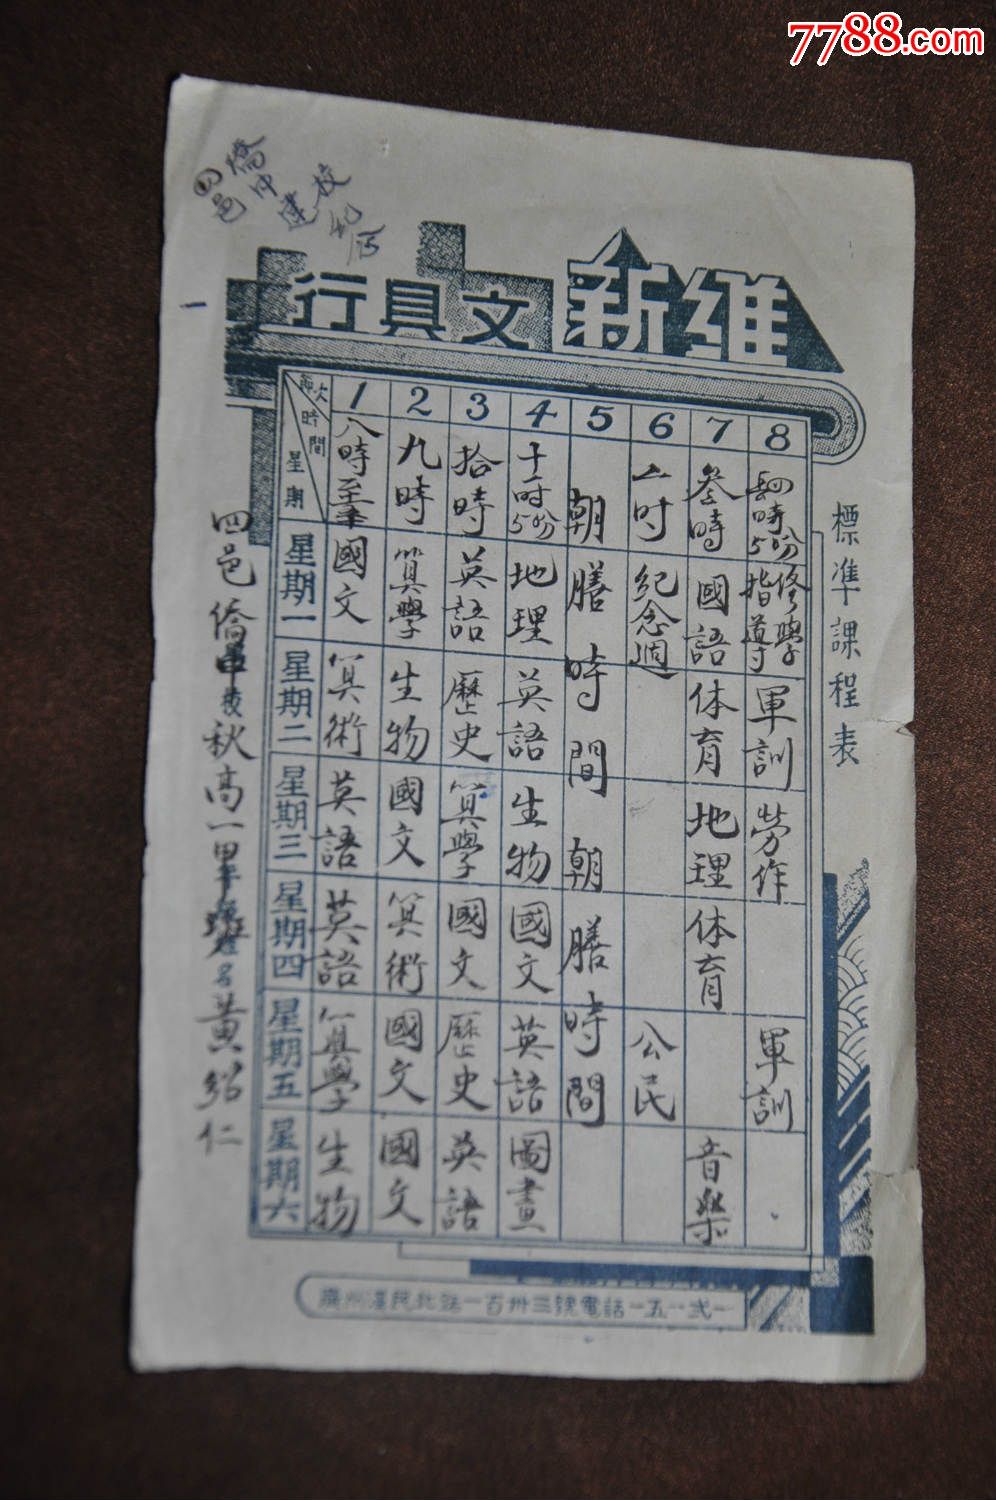 7788.com
四邑僑中建校
行具文新維
標準課程表
節次 時間 星期
1 2 3 4 5 6 7 8
八時至 九時 拾時 十一時5份 二时 叁時 四時5份
星期一 國文 算學 英語 地理 紀念週 國語 修學指導
星期二 算術 生物 歷史 英語 体育 軍訓
星期三 英語 國文 算學 生物 地理 勞作
星期四 英語 算術 國文 國文 体育
星期五 算學 國文 歷史 英語 公民 軍訓
星期六 生物 國文 英語 圖畫 音樂
朝膳時間朝膳時間
四邑僑中校秋高一甲 姓名黃紹仁
廣州漢民北路一百卅三號電話一五一弍一